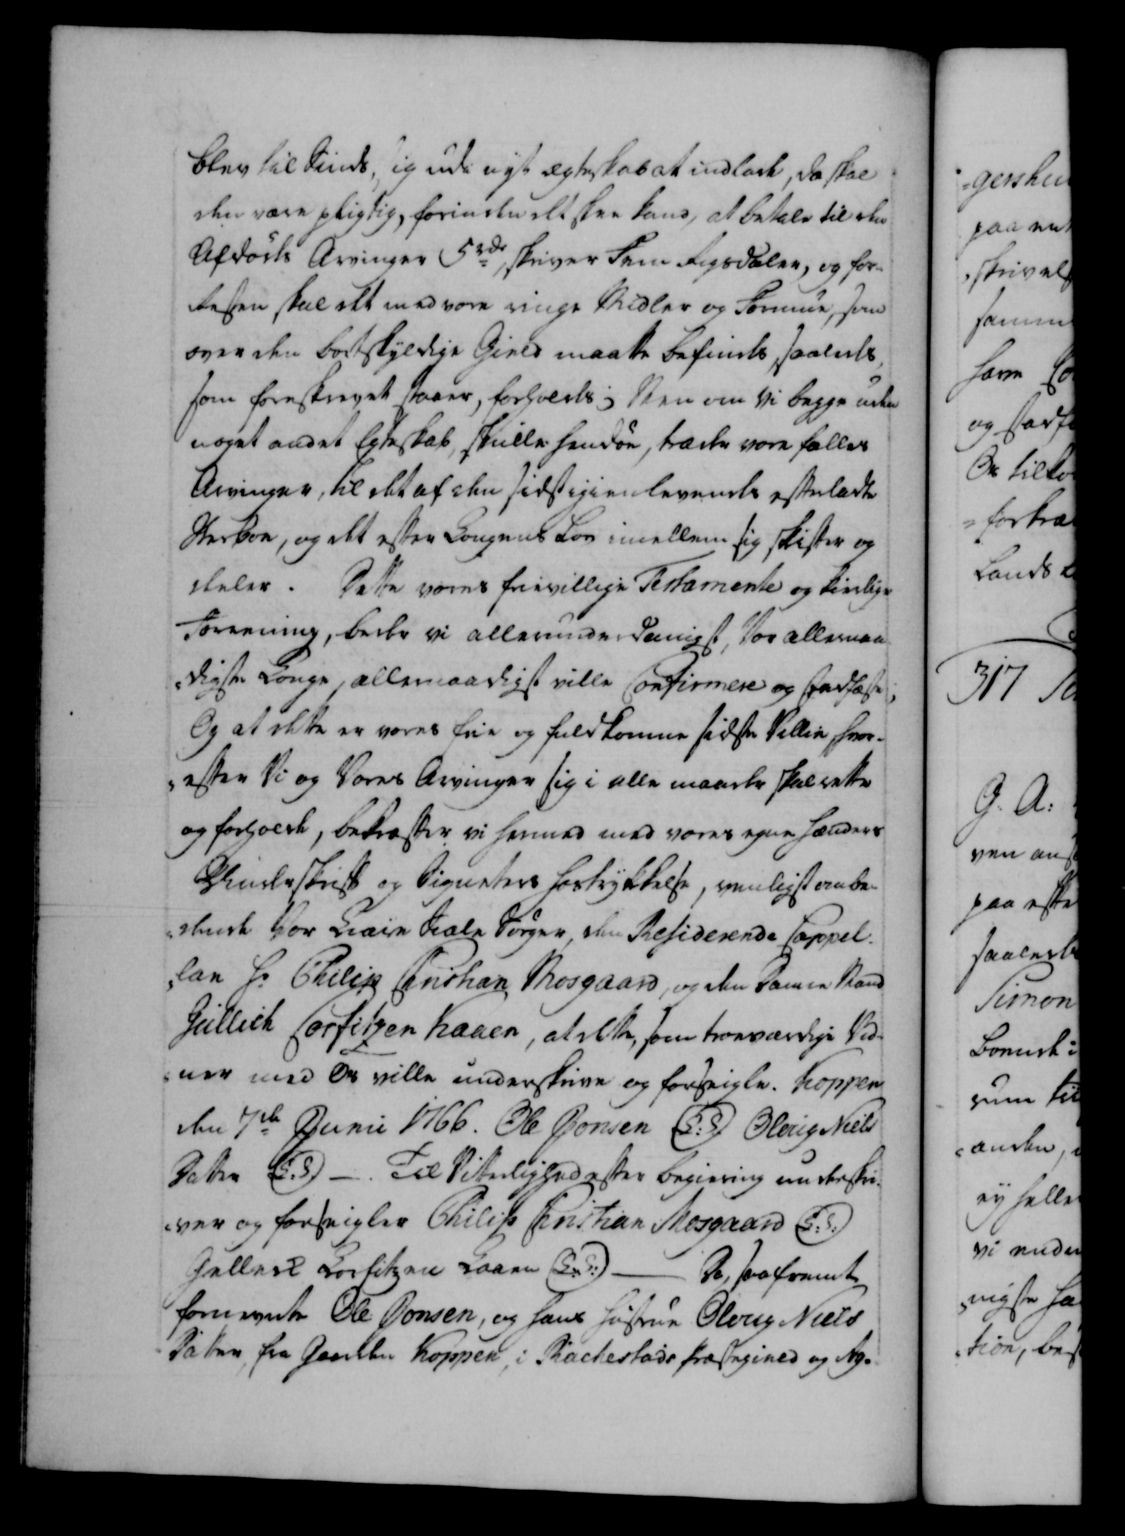 blev til Sinds, sig udi nyt ægteskab at indlade, da skal
den være pligtig, forinden det skee kand, at betale til den
Afdødes Arvinger 5 rdr, skriver Fem Rigsdaler, og for-
resten skal det med vore ringe Midler og Formue, som
over den bortskyldige Gield maatte befindes, saaledes,
som foreskrevet staaer, forholdes; Men om Vi begge uden
noget andet Egteskab, skulle hendøe, træder vore fælles
Arvinger, til det af den sidst igienlevende efterladte
Sterboe, og det efter Kongens Lov imellem sig skifter og
deeler. Dette vores frievillige Testamente og kierlige
Forening, beder vi allerunderdanigst, Vor allernaa-
digste Konge, allernaadigst ville Confirmere og stadfæste;
Og at dette er vores frie og fuldkomne sidste Villie, hvor-
efter Vi og Vores Arvinger sig i alle maader skal rette
og forholde, bekræfter vi hermed med vores egne Hænders
Underskrift og Signeters hostrykkelse, venligst ombe-
dende Vor Kiære Siæle Sørger, den Residerende Cappel-
lan Hr. Philip Christian Mosgaard, og den Danne Mand
Gullich Corfitzen Kaaen, at dette, som troeværdige Vid-
ner med Os ville underskrive og forseigle. Koppen
den 7de Junii 1766. Ole Jonsen (L:S) Oloug Niels
Datter (L:S) —. Til Vitterlighed efter begiering underskri-
ver og forseigler Philip Christian Mosgaard (L:S:)
Gullich Corfitzen Kaaen (L:S:) — Da, saafremt
fornevnte Ole Jonsen, og hans Hustrue Oloug Niels
Datter, fra Gaarden Koppen, i Rachestads Præstegield og Ag-
-gershu
paa ent
skrivels
samme
have
og stadfæ
Os tilko
-forkræ
Lands
317
G. A:
ven ans
paa efte
saalede
Simon
boende i
rum til
anden,
ey helle
vi ende
nigste ha
tion, be